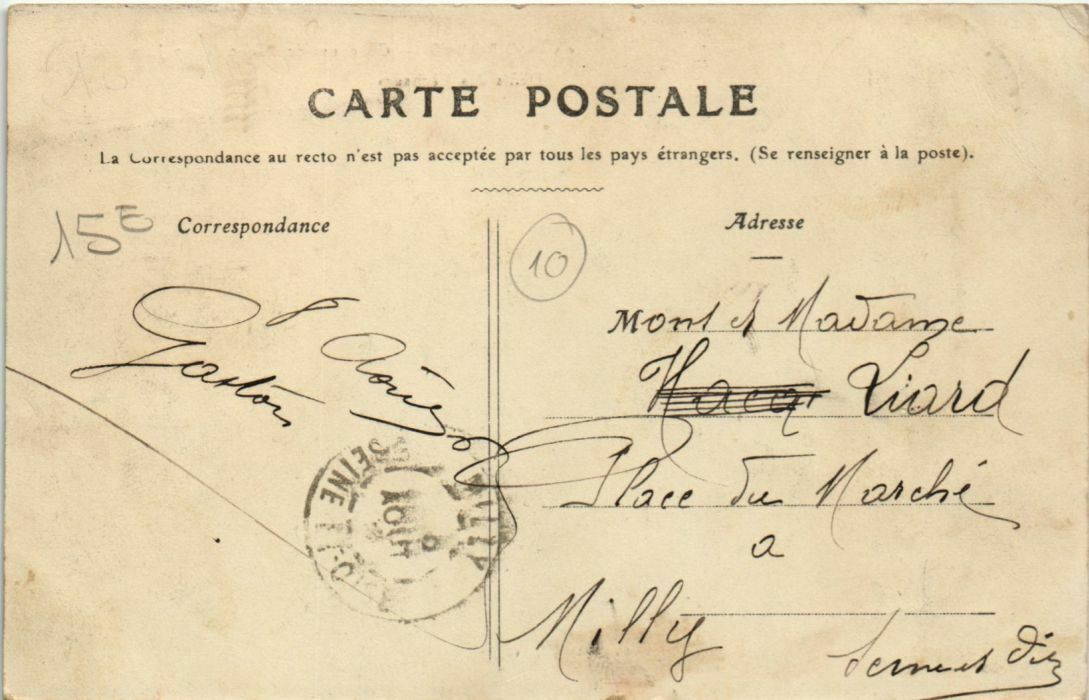 CARTE POSTALE
La Correspondance au recto n'est pas acceptée par tous les pays étrangers. (Se renseigner à la poste).
15E
Correspondance
10
Adresse
Gaston
Monst et Madame
Liard
Place du Marché
a
Milly
Seine et Oise
MILLY
AOUT
SEINE-ET-OISE